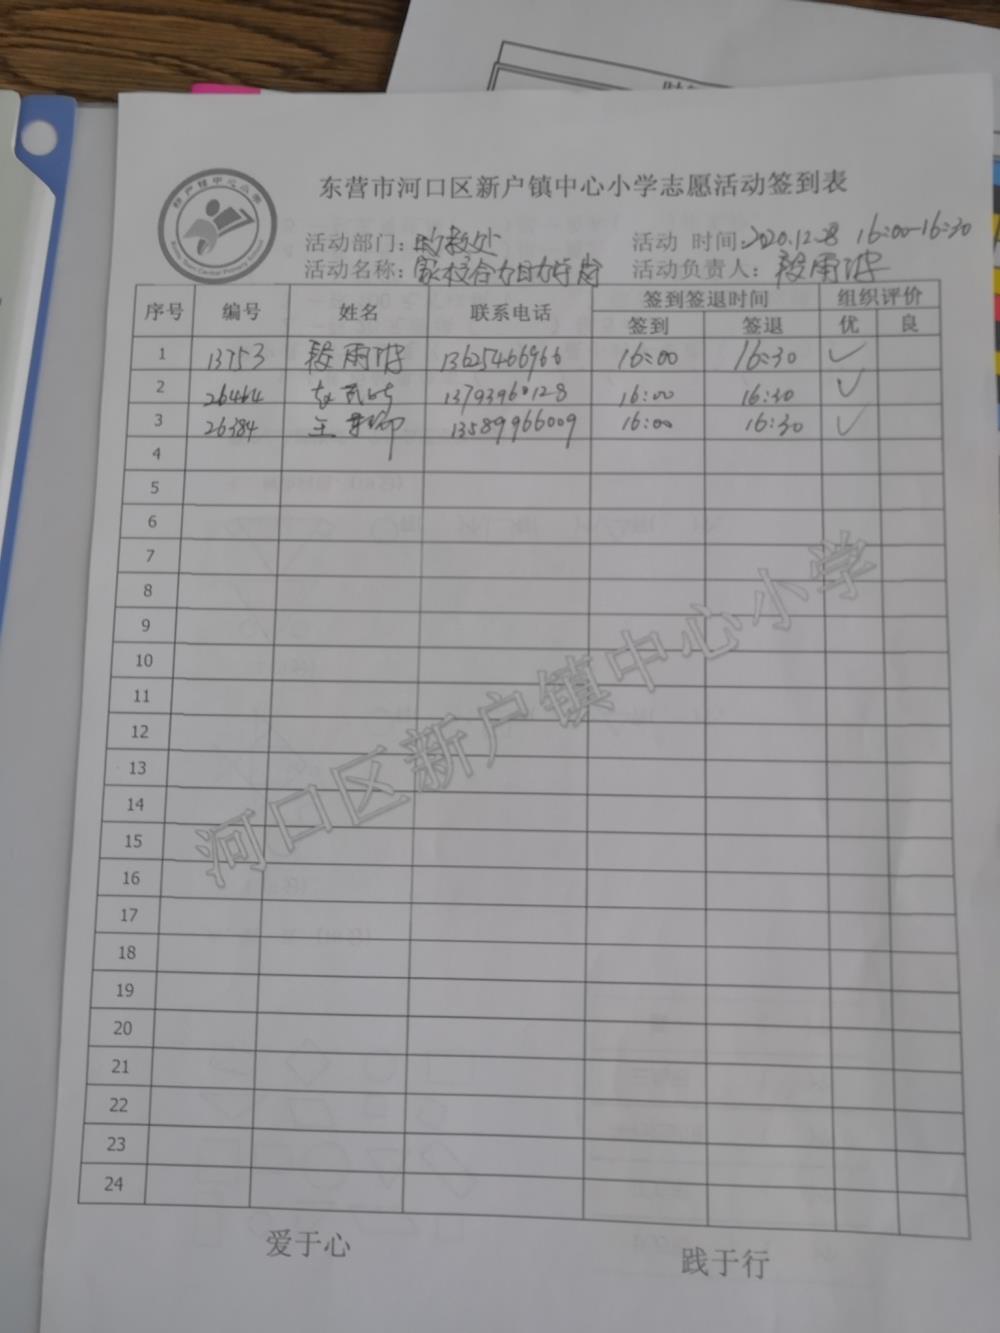 东营市河口区新户镇中心小学志愿活动签到表
活动部门：政教处 活动 时间：2020.12.28 16:00-16:30
活动名称：家校合力护导岗 活动负责人：段雨
序号 编号 姓名 联系电话 签到签退时间 组织评价
签到 签退 优 良
1 13753 段雨 13625466966 16:00 16:30 ✓
2 26464 13793960128 16:00 16:30 ✓
3 26384 王 13589966009 16:00 16:30 ✓
4
5
6
7
8
9
10
11
12
13
14
15
16
17
18
19
20
21
22
23
24
河口区新户镇中心小学
爱于心 践于行